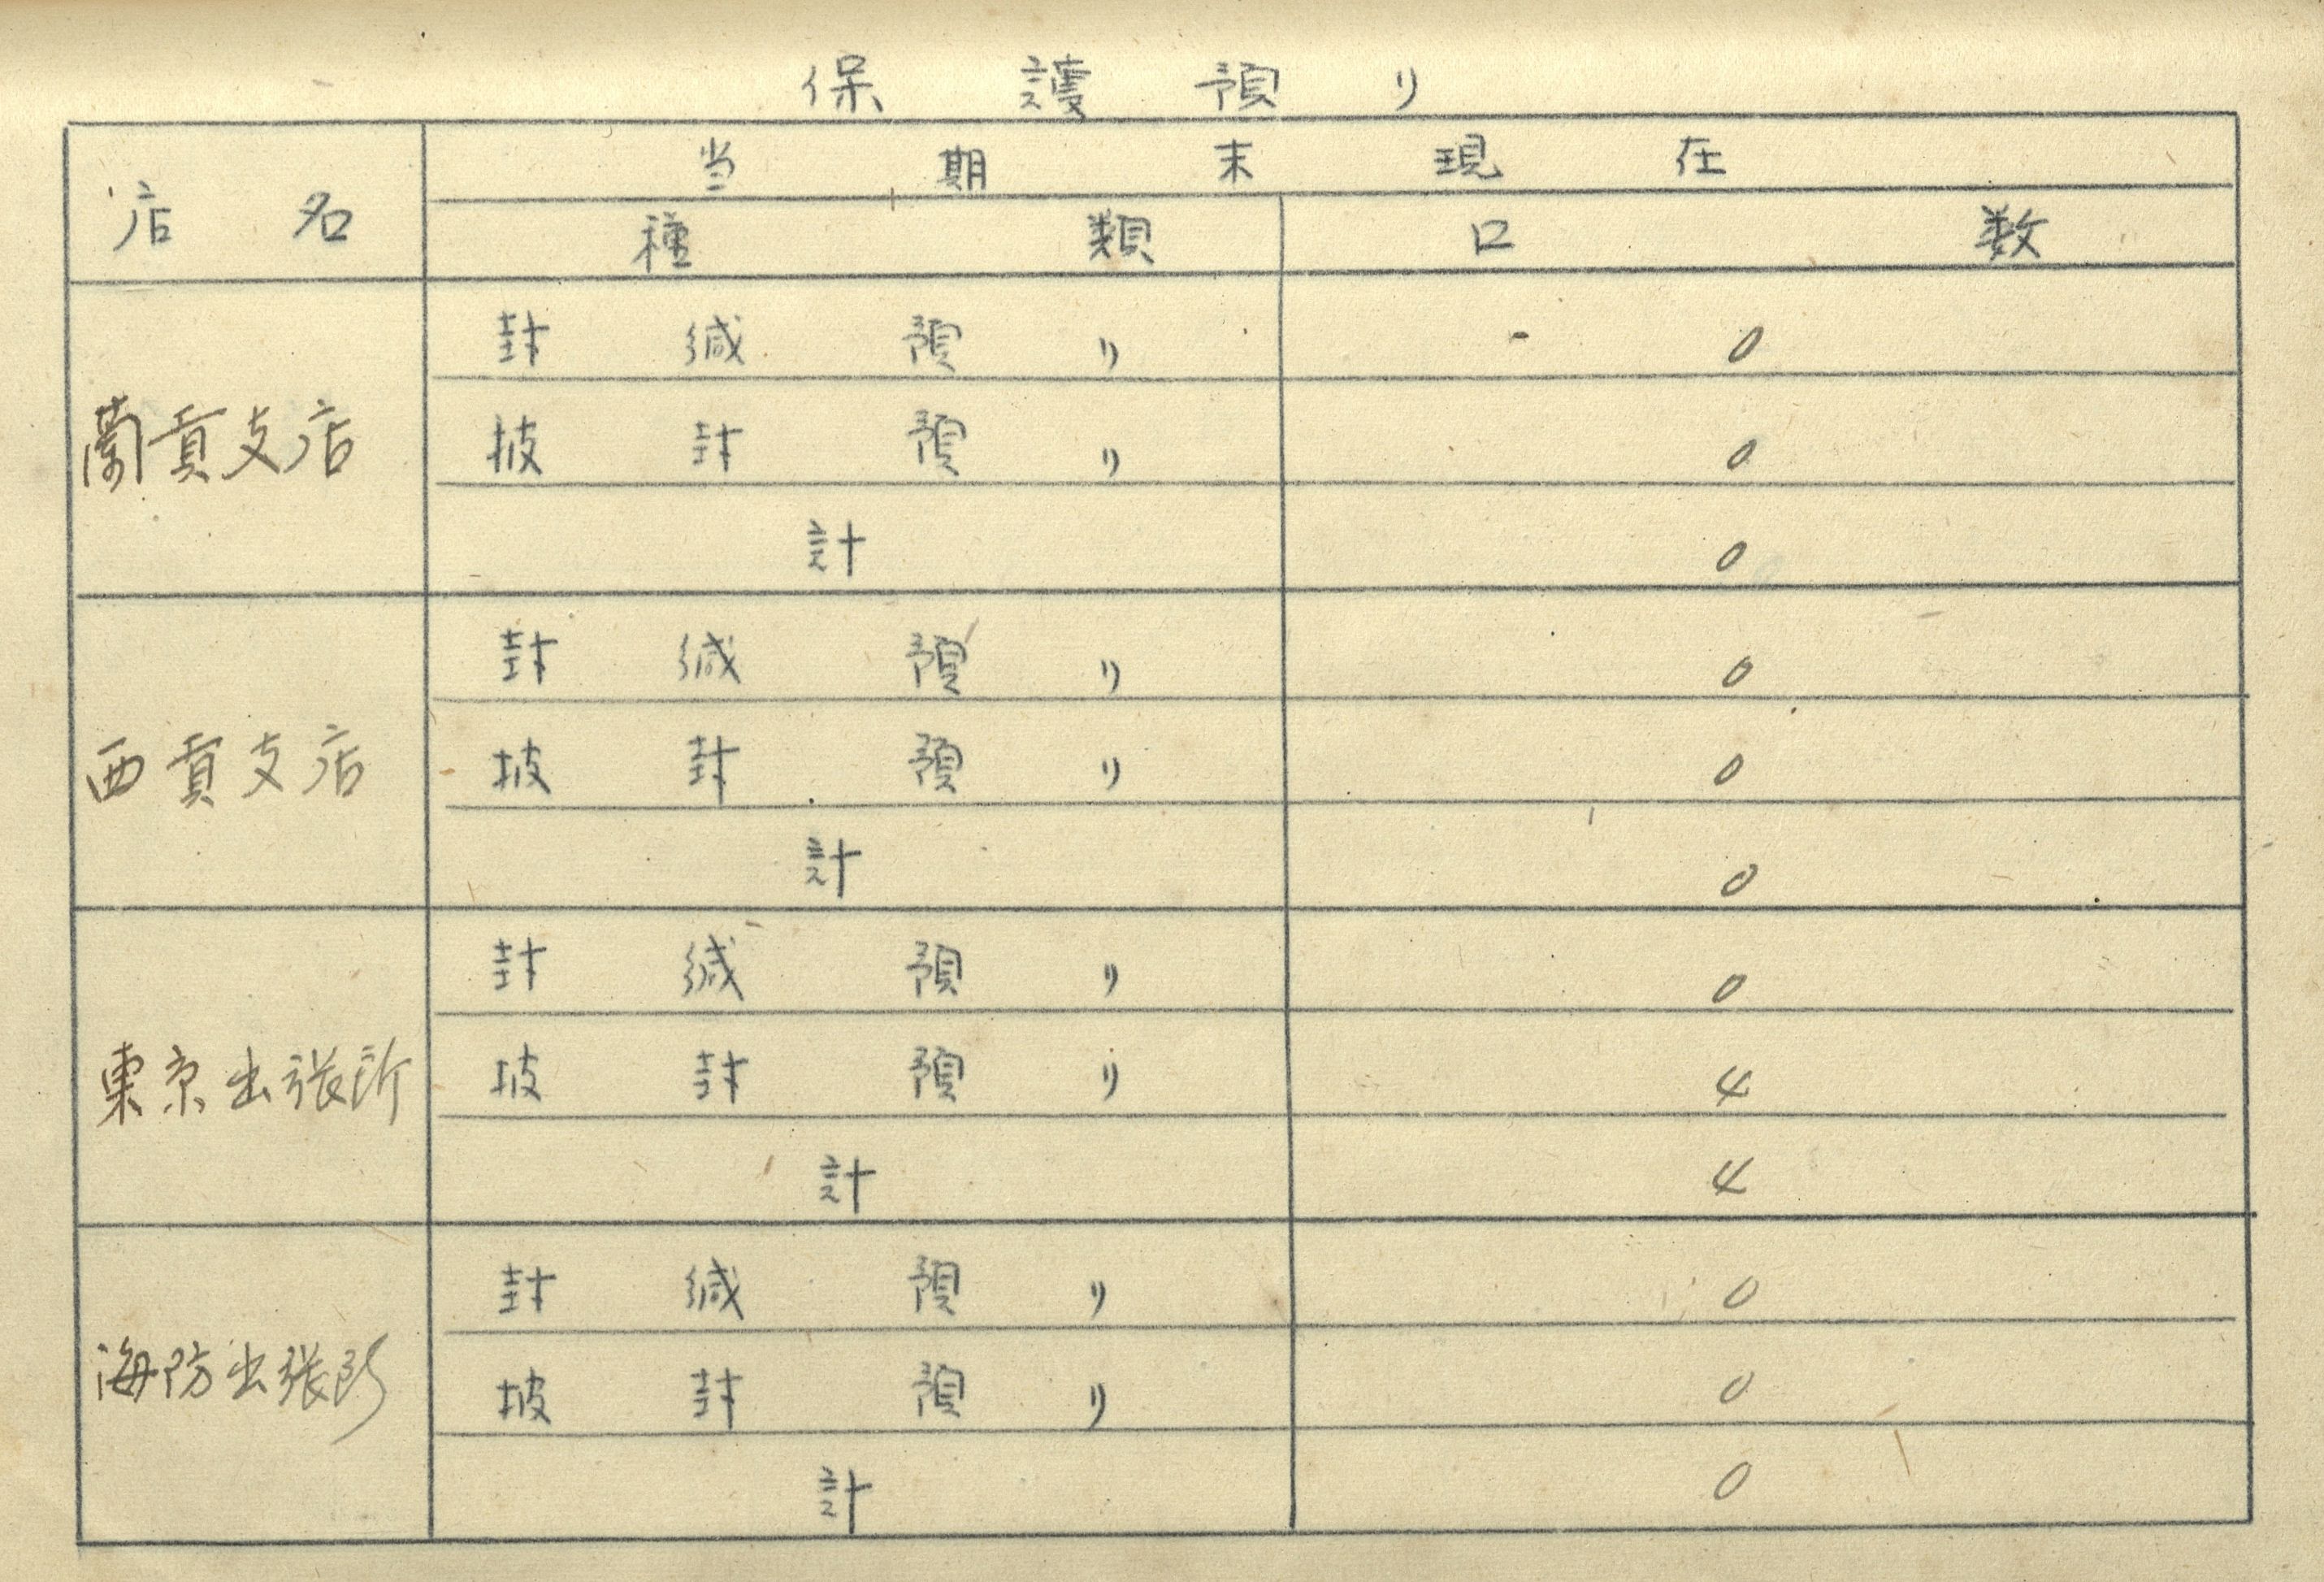 保護預り
店名 当期末現在
種類 口数
蘭貢支店 封緘預り 0
披封預り 0
計 0
西貢支店 封緘預り 0
披封預り 0
計 0
東京出張所 封緘預り 0
披封預り 4
計 4
海防出張所 封緘預り 0
披封預り 0
計 0